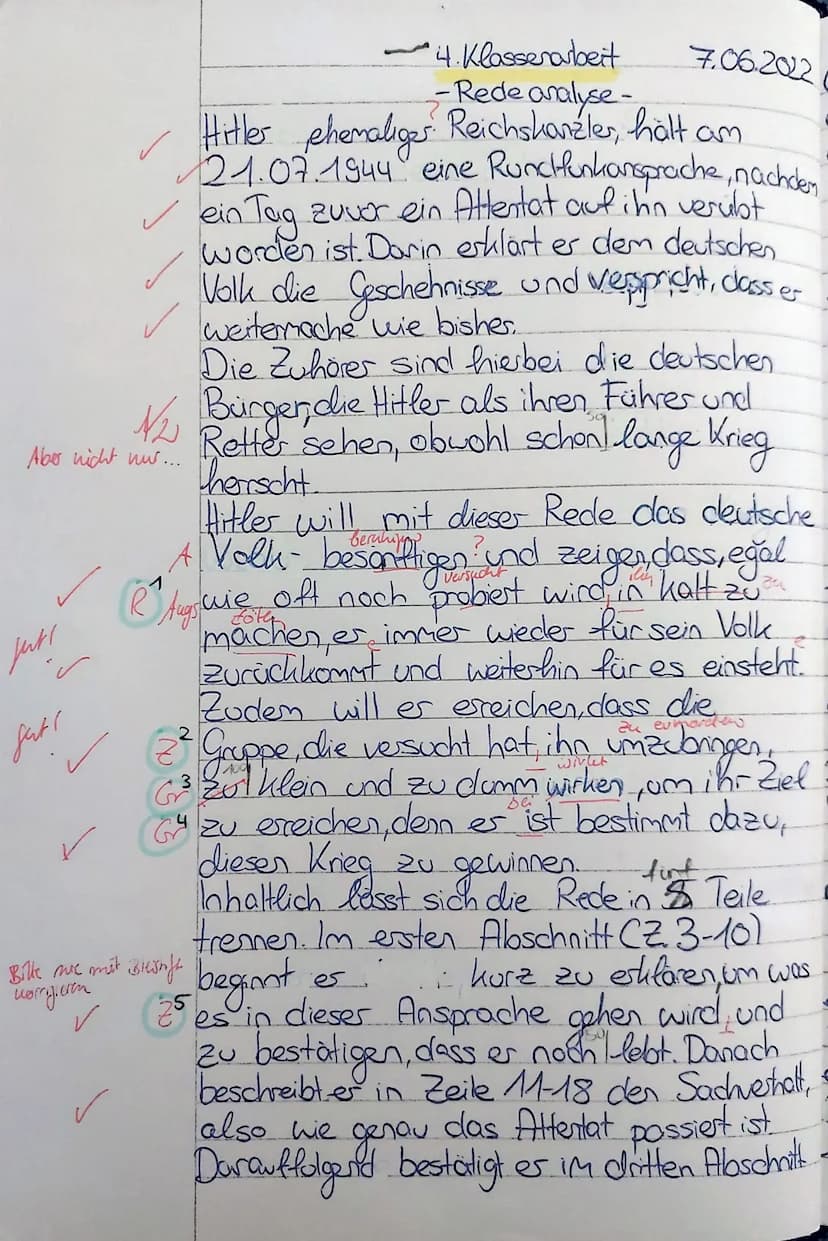 4. Klassenarbeit 7.06.2022
- Redeanalyse -
?
Hitler ehemaliger Reichskanzler, hält am
21.07.1944 eine Rundfunkansprache, nachdem
ein Tag zuvor ein Attentat auf ihn verübt
worden ist. Darin erklärt er dem deutschen
Volk die Geschehnisse und verspricht, dass er
weitermache wie bisher.
Die Zuhörer sind hierbei die deutschen
Bürger, die Hitler als ihren Führer und
Retter sehen, obwohl schon so lange Krieg
Aber nicht nur...
herscht.
Hitler will mit dieser Rede das deutsche
A Volk besänftigen ? und zeigen, dass, egal
versucht ihn
R 1 wie oft noch probiert wird, in kalt zu
töten
machen, er immer wieder für sein Volk
gut!
zurückkommt und weiterhin für es einsteht.
Zudem will er erreichen, dass die
zu ermorden
gut! Z 2 Gruppe, die versucht hat, ihn umzubringen,
wirkt
Gr 3 zu klein und zu dumm wirken, um ihr Ziel
Gr 4 zu erreichen, denn er ist bestimmt dazu,
diesen Krieg zu gewinnen.
fünf
Inhaltlich lässt sich die Rede in Teile
trennen. Im ersten Abschnitt (Z. 3-10)
Bitte nur mit
korrigieren
beginnt er kurz zu erklären, um was
Z 5 es in dieser Ansprache gehen wird, und
zu bestätigen, dass er noch lebt. Danach
beschreibt er in Zeile 11-18 den Sachverhalt,
also wie genau das Attentat passiert ist.
Darauffolgend bestätigt er im dritten Abschnitt